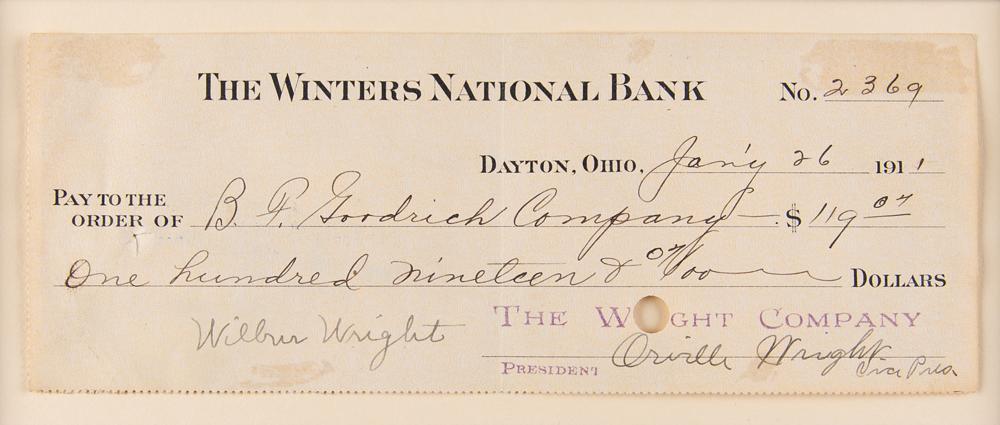 THE WINTERS NATIONAL BANK No. 2369
DAYTON, OHIO, Jan'y 26 1911
PAY TO THE ORDER OF B. F. Goodrich Company $119 07
One hundred nineteen & 07/00 DOLLARS
Wilbur Wright THE W GHT COMPANY
Orville Wright
PRESIDENT Vice Pres.